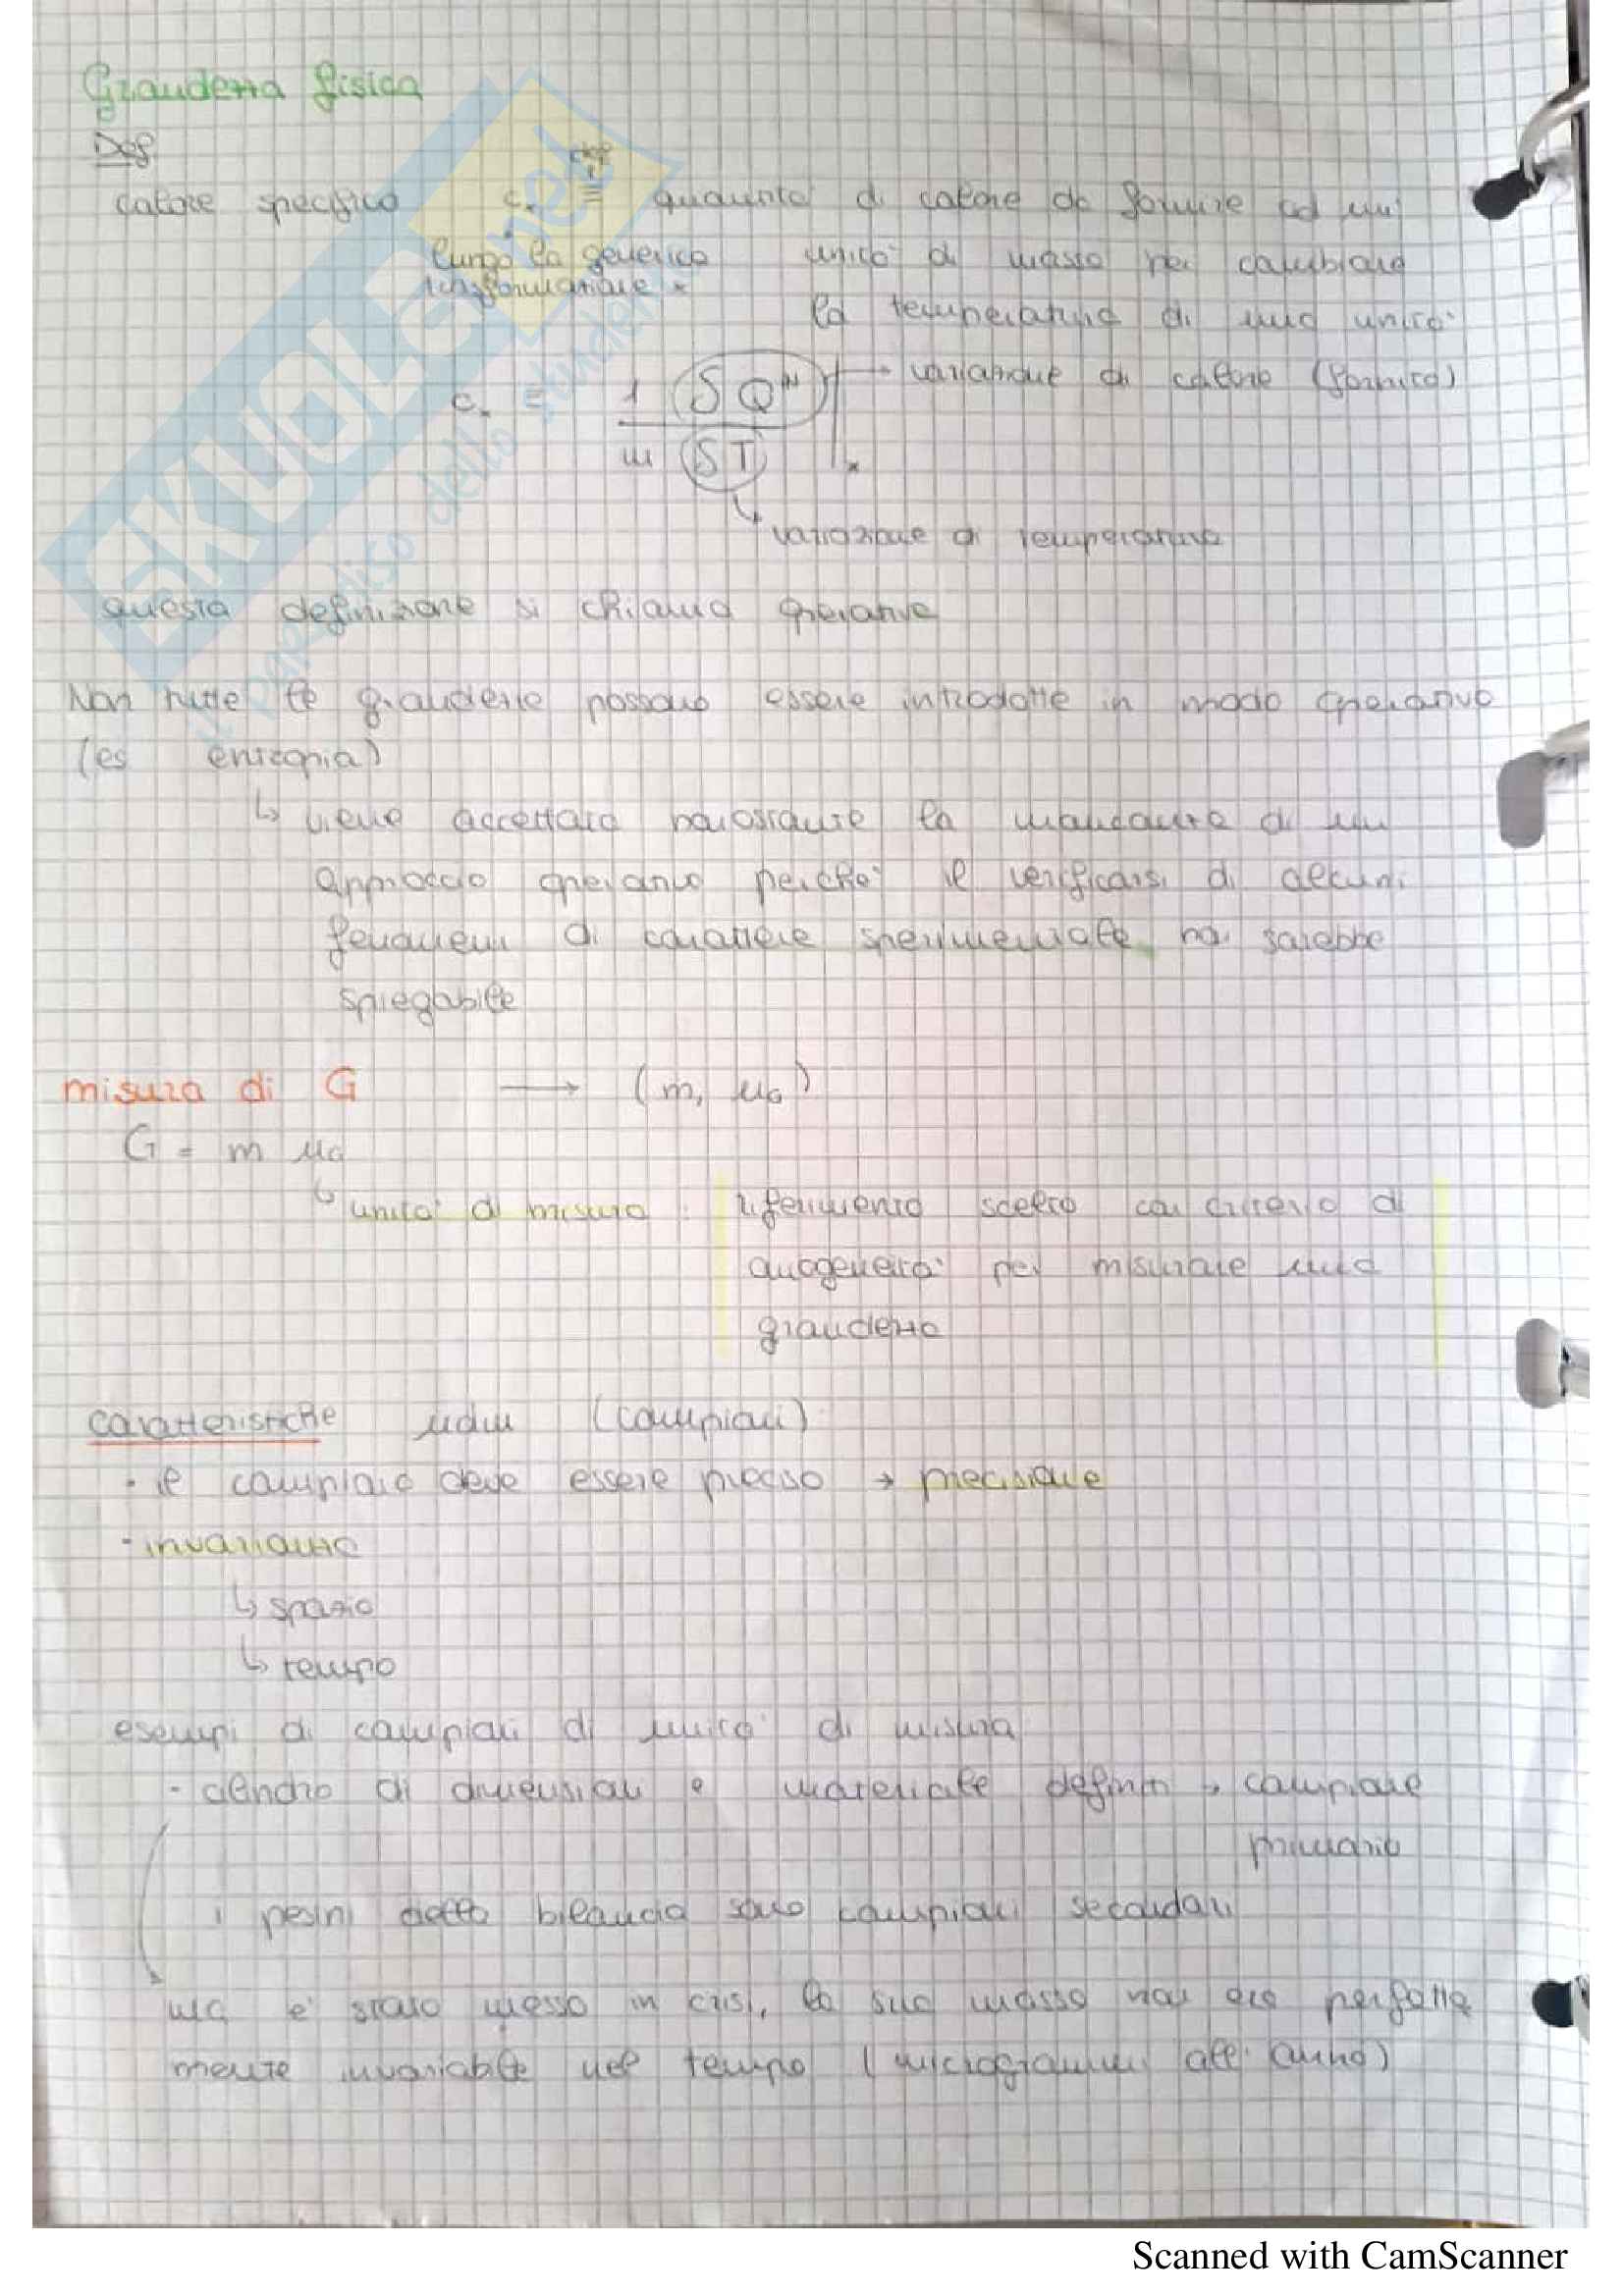 Grandezza fisica
Def
calore specifico c* ≡ quantità di calore da fornire ad un'
def
lungo la generica unità di massa per cambiare
trasformazione *
la temperatura di una unità
c* = 1 δQ^(IN) / m δT |* → variazione di calore (fornito)
↳ variazione di temperatura
questa definizione si chiama operativa
Non tutte le grandezze possono essere introdotte in modo operativo
(es entropia)
↳ viene accettata nonostante la mancanza di un
approccio operativo perchè il verificarsi di alcuni
fenomeni di carattere sperimentale non sarebbe
spiegabile
misura di G → (m, uG)
G = m uG
↳ unità di misura : riferimento scelto con criterio di
omogeneità per misurare una
grandezza
caratteristiche udm (campioni)
· il campione deve essere preciso → precisione
· invarianza
↳ spazio
↳ tempo
esempi di campioni di unità di misura
- cilindro di dimensioni e materiale definiti → campione
primario
i pesini della bilancia sono campioni secondari
ma è stato messo in crisi, la sua massa non era perfetta
mente invariabile nel tempo (microgrammi all'anno)
SKUOLA.net
il paradiso dello studente
Scanned with CamScanner